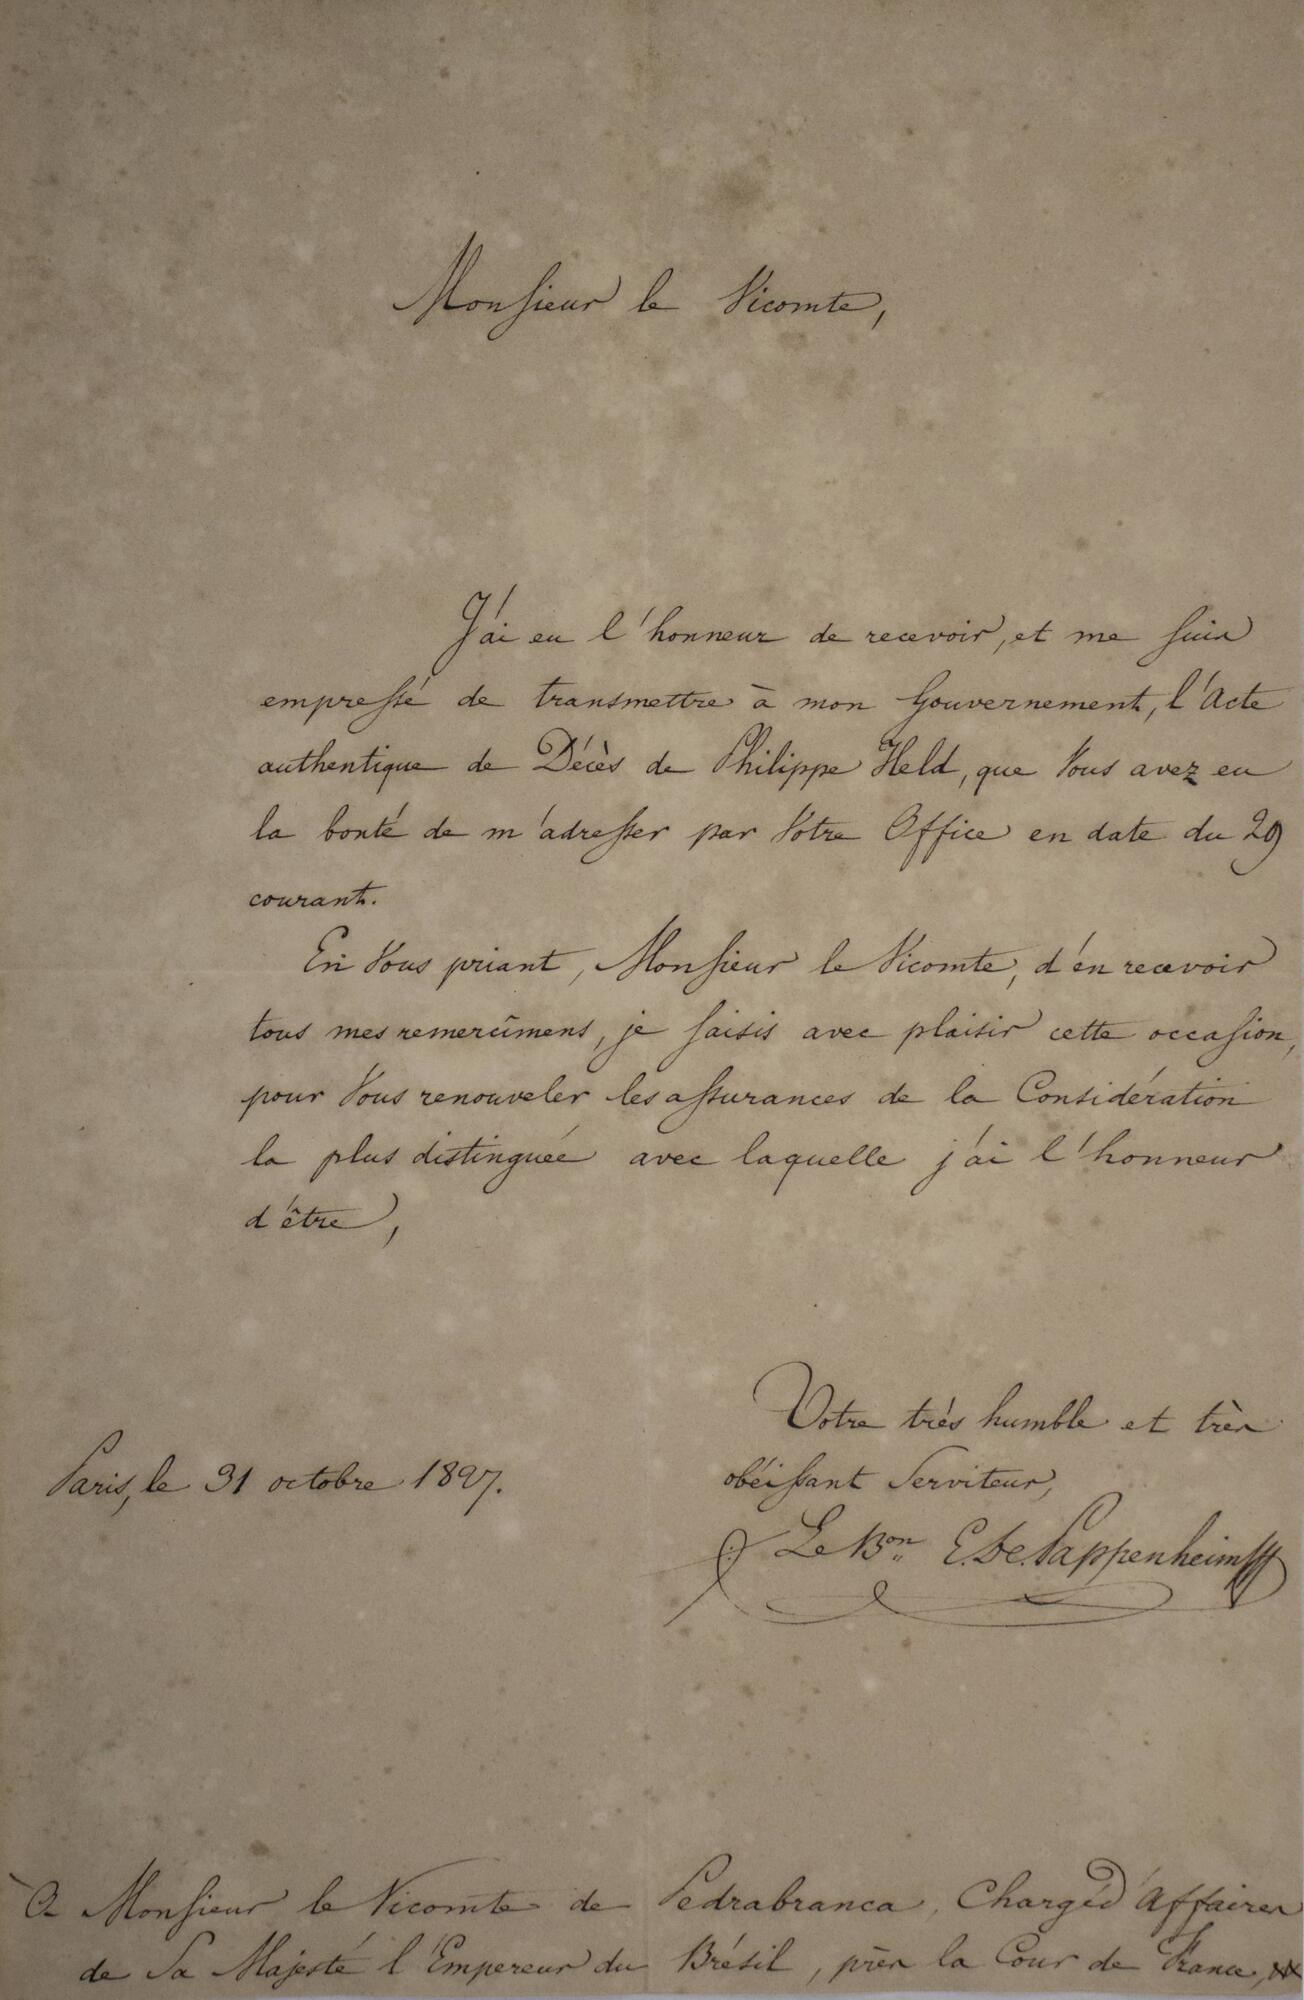 Monsieur le Vicomte,
J'ai eu l'honneur de recevoir, et me suis
empressé de transmettre à mon Gouvernement, l'Acte
authentique de Décès de Philippe Held, que Vous avez eu
la bonté de m'adresser par Votre Office en date du 29
courant.
En Vous priant, Monsieur le Vicomte, d'en recevoir
tous mes remercîmens, je saisis avec plaisir cette occasion,
pour Vous renouveler les assurances de la Considération
la plus distinguée avec laquelle j'ai l'honneur
d'être,
Votre très humble et très
obéissant Serviteur,
Paris, le 31 octobre 1827.
Le Bon E. De Pappenheim
À Monsieur le Vicomte de Pedrabranca, Chargé d'Affaires
de Sa Majesté l'Empereur du Brésil, près la Cour de France,